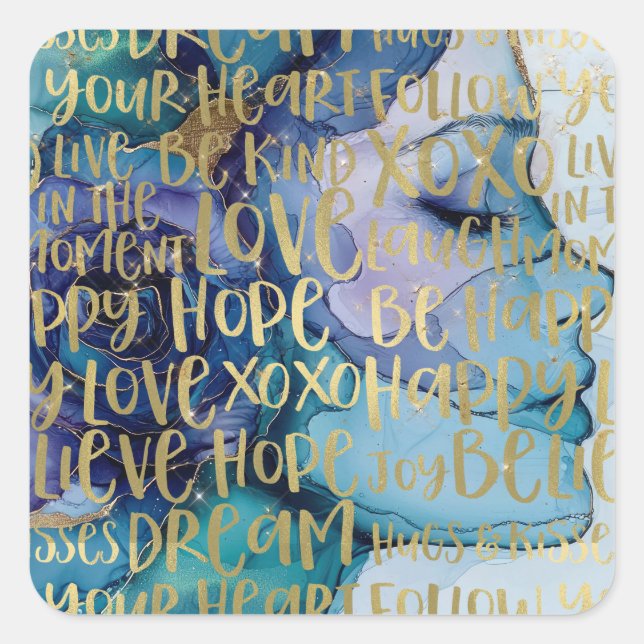 SSES DREAM HUGS & KISSE
YOUR HEART FOLLOW YO
LIVE BE KIND XOXO LIV
IN THE MOMENT LOVE LAUGH IN T MOM
PPY HOPE BE HAPP
Y LOVE XOXO HAPPY L
LIEVE HOPE JOY BELIE
SSES DREAM HUGS & KISSE
YOUR HEART FOLLOW YO